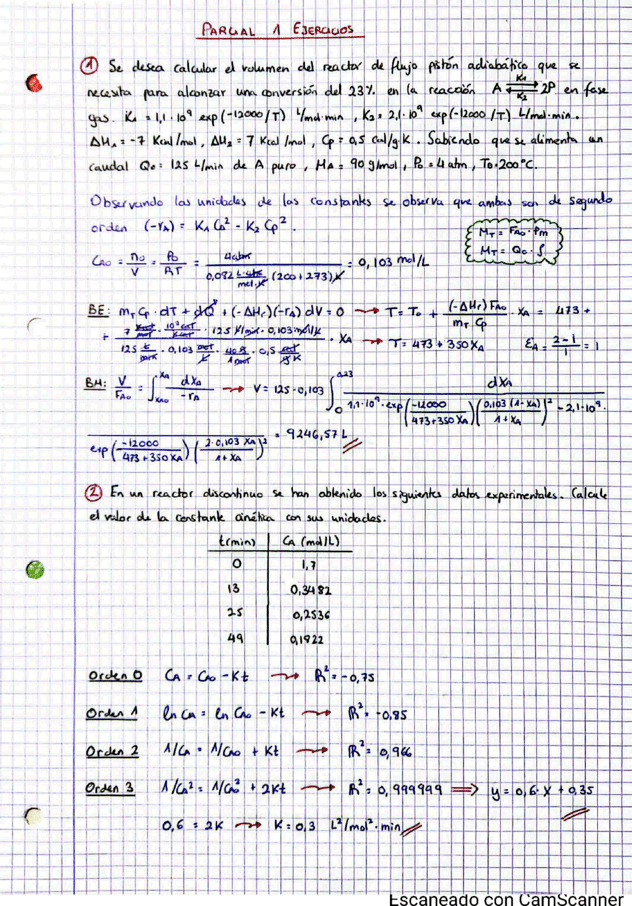 PARCIAL 1 EJERCICIOS
① Se desea calcular el volumen del reactor de flujo pistón adiabático que se
necesita para alcanzar una conversión del 23% en la reacción A ⇄ 2P en fase
K₁
K₂
gas. K₁ = 1,1·10⁹ exp(-12000/T) L/mol·min, K₂ = 2,1·10⁹ exp(-12000/T) L/mol·min.
ΔH₁ = -7 Kcal/mol, ΔH₂ = 7 Kcal/mol, Cp = 0,5 cal/g·K. Sabiendo que se alimenta un
caudal Q₀ = 125 L/min de A puro, MA = 90 g/mol, P₀ = 4 atm, T₀ = 200°C.
Observando las unidades de las constantes se observa que ambas son de segundo
orden (-rA) = K₁ CA² - K₂ Cp².
mT = FA₀ · Pm
mT = Q₀ · ρ
CA₀ = n₀/V = P₀/RT = 4 atm / (0,082 L·atm/mol·K (200+273) K) = 0,103 mol/L
BE: mT Cp · dT + dQ + (-ΔHr)(-rA) dV = 0 → T = T₀ + (-ΔHr) FA₀ / mT Cp · XA = 473 +
+ 7 Kcal/mol · 10³ cal/Kcal · 125 L/min · 0,103 mol/L / (125 L/min · 0,103 mol/L · 40 g/1 mol · 0,5 cal/g K) · XA → T = 473 + 350 XA εA = (2-1)/1 = 1
BM: V/FA₀ = ∫ XA₀ XA dXA / -rA → V = 125 · 0,103 ∫ 0 0,23 dXA / 1,1·10⁹ · exp(-12000 / 473+350 XA) (0,103 (1-XA) / 1+XA)² - 2,1·10⁹ ·
exp(-12000 / 473+350 XA) (2·0,103 XA / 1+XA)² = 9246,57 L
② En un reactor discontinuo se han obtenido los siguientes datos experimentales. Calcule
el valor de la constante cinética con sus unidades.
t(min) CA (mol/L)
0 1,7
13 0,3482
25 0,2536
49 0,1822
Orden 0 CA = CA₀ - Kt → R² = -0,75
Orden 1 ln CA = ln CA₀ - Kt → R² = -0,85
Orden 2 1/CA = 1/CA₀ + Kt → R² = 0,966
Orden 3 1/CA² = 1/CA₀² + 2Kt → R² = 0,999999 ⟹ y = 0,6·X + 0,35
0,6 = 2K → K = 0,3 L²/mol²·min
Escaneado con CamScanner